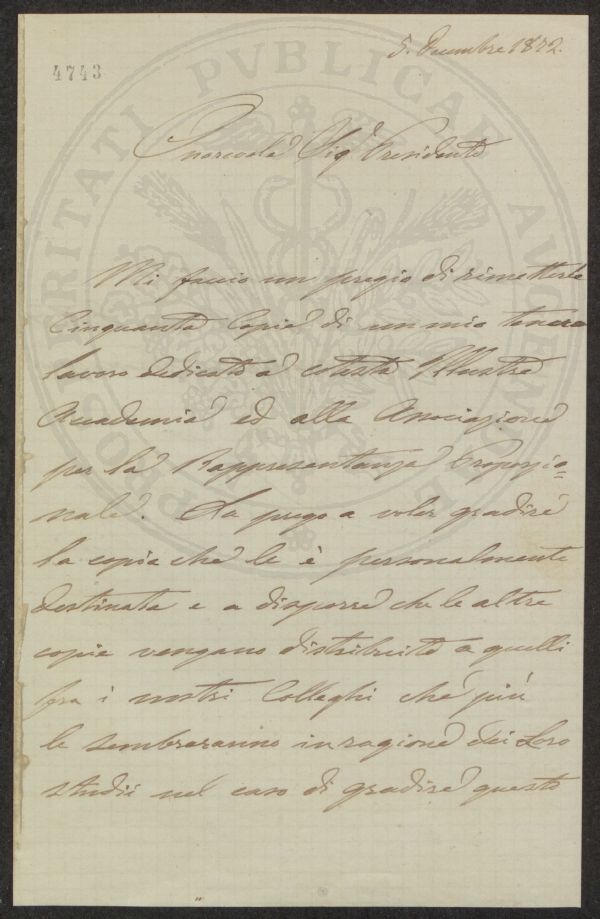 5. Decembre 1872.
4743
PROSPERITATI PVBLICAE AVGENDAE
Onorevole Sig.r Presidente
Mi faccio un pregio di rimetterle
Cinquanta Copie di un mio tenue
lavoro dedicato a cotesta Illustre
Accademia ed alla Associazione
per la Rappresentanza Proporzio=
nale. La prego a voler gradire
la copia che le è personalmente
destinata e a disporre che le altre
copie vengano distribuite a quelli
fra i nostri Colleghi che più
le sembreranno in ragione dei Loro
studii nel caso di gradire questo